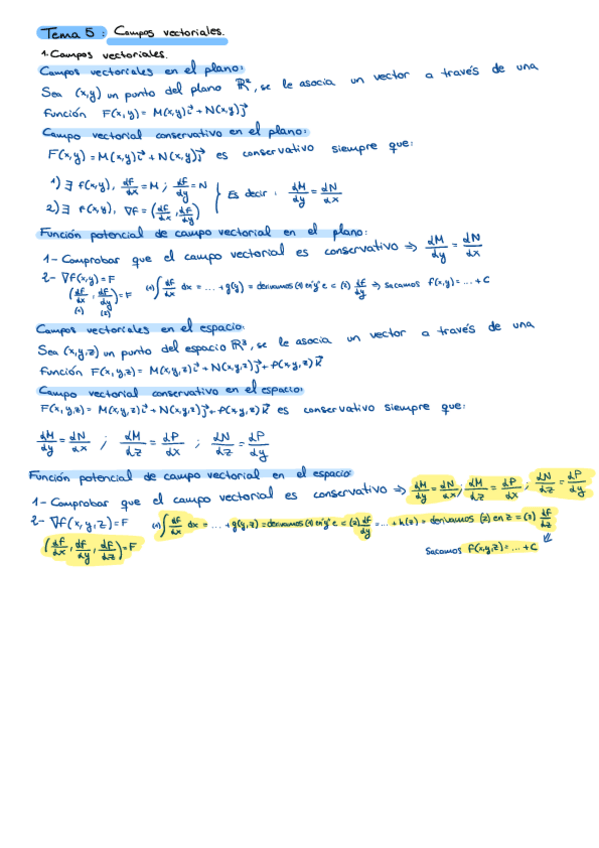 Tema 5: Campos vectoriales.
1. Campos vectoriales.
Campos vectoriales en el plano:
Sea (x,y) un punto del plano ℝ², se le asocia un vector a través de una
función F(x,y) = M(x,y)i⃗ + N(x,y)j⃗
Campo vectorial conservativo en el plano:
F(x,y) = M(x,y)i⃗ + N(x,y)j⃗ es conservativo siempre que:
1) ∃ f(x,y), df/dx = M ; df/dy = N } Es decir: dM/dy = dN/dx
2) ∃ f(x,y), ∇f = (df/dx, df/dy)
Función potencial de campo vectorial en el plano:
1- Comprobar que el campo vectorial es conservativo ⇒ dM/dy = dN/dx
2- ∇f(x,y) = F
(df/dx, df/dy) = F (1) ∫ df/dx dx = ... + g(y) = derivamos (1) en y e = (2) df/dy ⇒ sacamos f(x,y) = ... + C
(1) (2)
Campos vectoriales en el espacio:
Sea (x,y,z) un punto del espacio ℝ³, se le asocia un vector a través de una
función F(x,y,z) = M(x,y,z)i⃗ + N(x,y,z)j⃗ + P(x,y,z)k⃗
Campo vectorial conservativo en el espacio:
F(x,y,z) = M(x,y,z)i⃗ + N(x,y,z)j⃗ + P(x,y,z)k⃗ es conservativo siempre que:
dM/dy = dN/dx ; dM/dz = dP/dx ; dN/dz = dP/dy
Función potencial de campo vectorial en el espacio:
1- Comprobar que el campo vectorial es conservativo ⇒ dM/dy = dN/dx ; dM/dz = dP/dx ; dN/dz = dP/dy
2- ∇f(x,y,z) = F (1) ∫ df/dx dx = ... + g(y,z) = derivamos (1) en y e = (2) df/dy = ... + h(z) = derivamos (2) en z = (3) df/dz
(df/dx, df/dy, df/dz) = F
Sacamos f(x,y,z) = ... + C